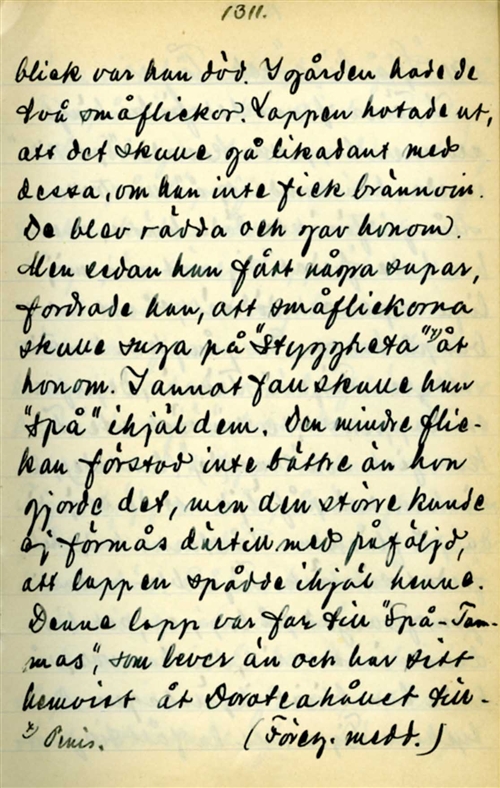 1311.
blick var han död. I gården hade de
två småflickor. Lappen hotade ut,
att det skulle gå likadant med
dessa, om han inte fick brännvin.
De blev rädda och gav honom.
Men sedan han fått några supar,
fordrade han, att småflickorna
skulle suga på "styggheta" x) åt
honom. I annat fall skulle han
"spå" ihjäl dem. Den mindre flic-
kan förstod inte bättre än hon
gjorde det, men den större kunde
ej förmås därtill med påföljd,
att lappen spådde ihjäl henne.
Denne lapp var far till "Spå-Tam-
mas", som lever än och har sitt
hemvist åt Doroteahållet till.
x) Penis. (Föreg. medd.)